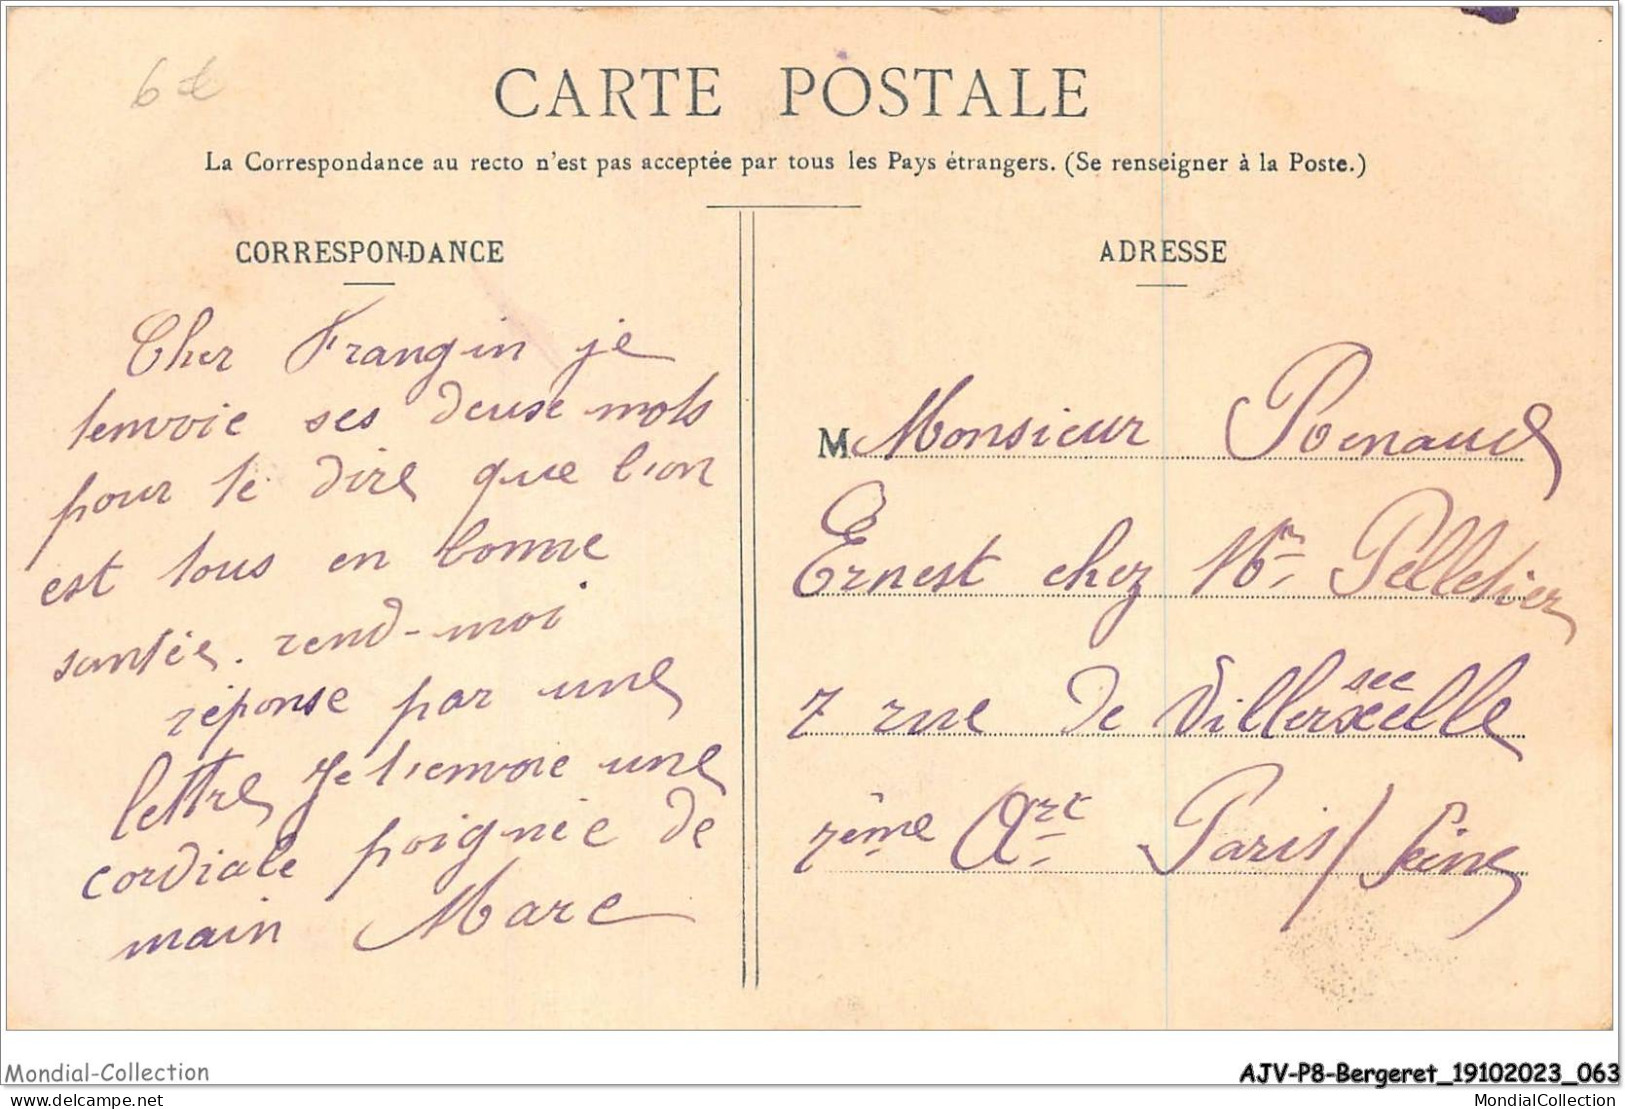 6€
CARTE POSTALE
La Correspondance au recto n'est pas acceptée par tous les Pays étrangers. (Se renseigner à la Poste.)
CORRESPONDANCE
Cher Frangin je
tenvoie ses deuse mots
pour te dire que l'on
est tous en bonne
santée. rend-moi
réponse par une
lettre Je t'envoie une
cordiale poignée de
main Marc
ADRESSE
M Monsieur
Ernest chez Mr Pelletier
7 rue de Villersexelle
see
7ème Art Paris / Seine
Mondial-Collection
AJV-P8-Bergeret_19102023_063
delcampe.net
MondialCollection